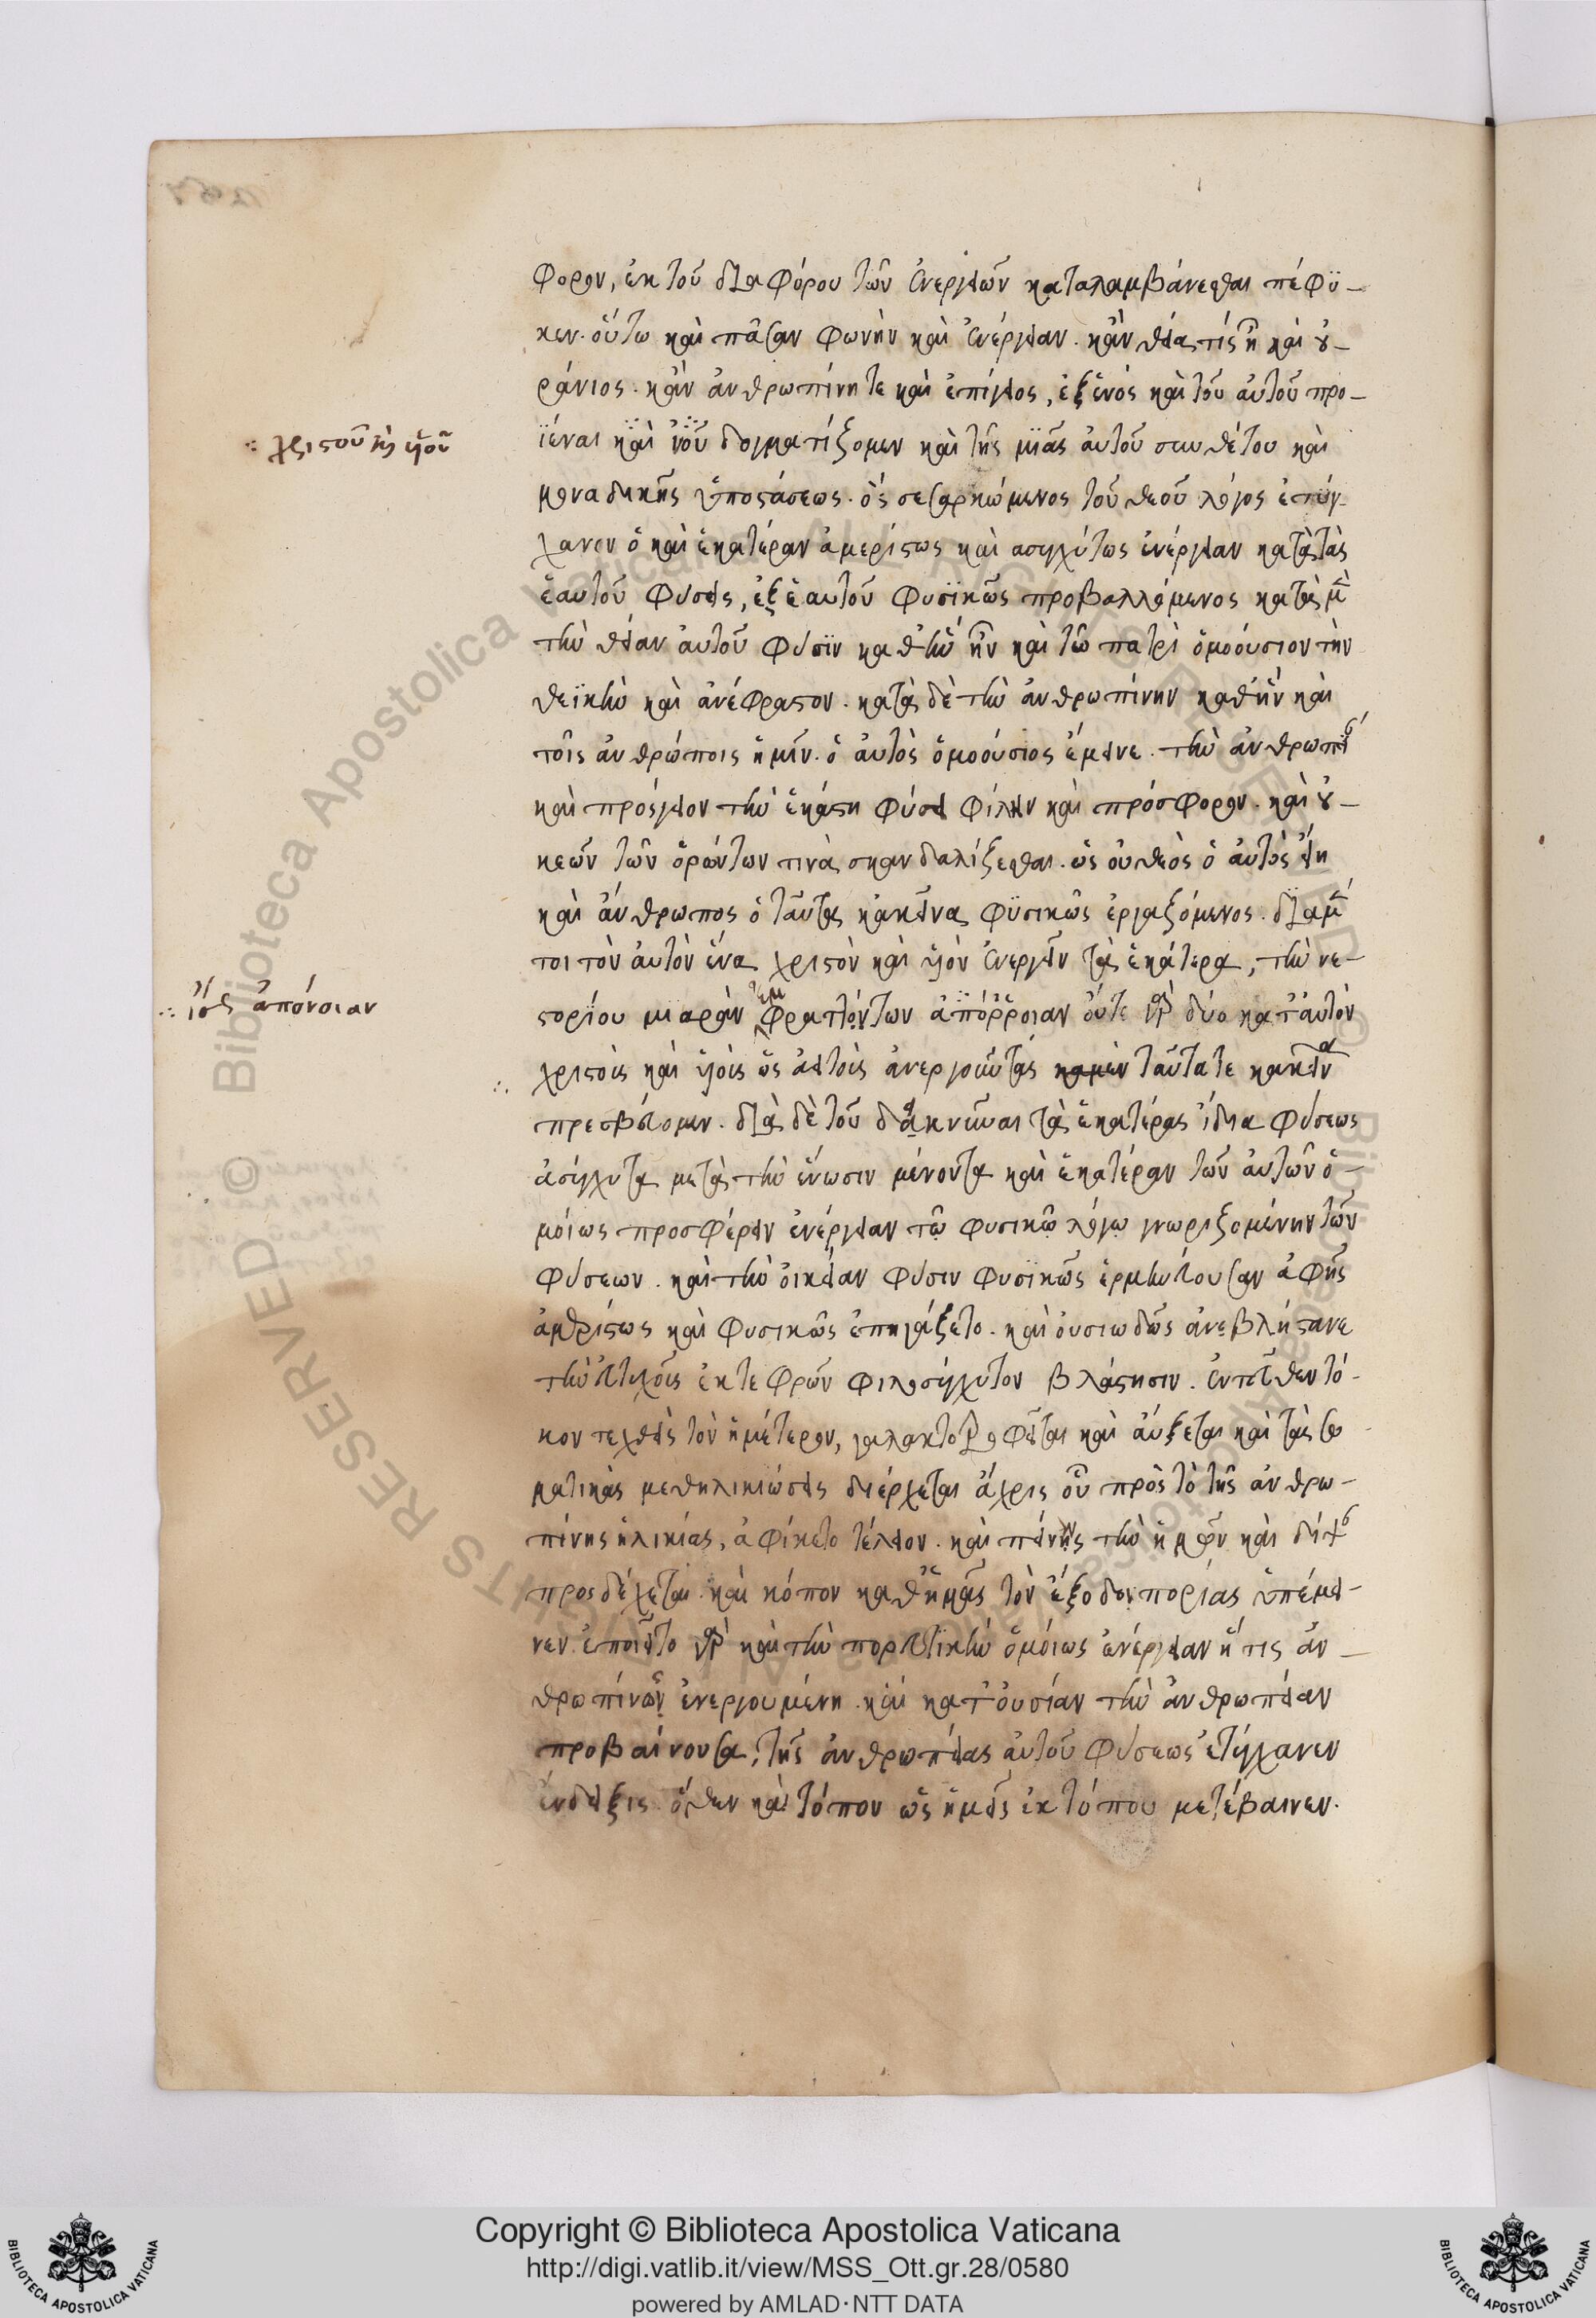 φορον, ἐκ τοῦ διαφόρου τῶν ἐνεργειῶν καταλαμβάνεσθαι πέφϋ-
κεν. οὕτω καὶ πᾶσαν φωνὴν καὶ ἐνέργειαν. κἂν θεία τίς ἦ καὶ ου-
ράνιος. κἂν ἀνθρωπίνη τε καὶ ἐπίγειος, ἐξ ἑνὸς καὶ τοῦ αὐτοῦ προ-
ϊέναι καὶ δογματίζομεν καὶ τῆς μϊᾶς αὐτοῦ συνθέτου καὶ
∴ χριστοῦ κ(αὶ) ὑϊοῦ
μοναδικῆς ὑποστάσεως. ὃς σεσαρκωμενος τοῦ θεοῦ λόγος ἐτύγ-
χανεν ὁ καὶ ἑκατέραν ἀμερίστως καὶ ασυγχύτως ἐνέργειαν κατὰ τὰς
ἑαυτοῦ φύσεις, ἐξ ἑαυτοῦ φυσϊκῶς προβαλλόμενος κατὰ μὲν
τὴν θείαν αὐτοῦ φύσϊν καθ ἣν ἦν καὶ τῶ πατρὶ ὁμοούσιον τὴν
θεϊκὴν καὶ ἀνέφραστον. κατὰ δὲ τὴν ἀνθρωπίνην καθ ἣν καὶ
τοῖς ἀνθρώποις ἡμῖν. ὁ αὐτὸς ὁμοούσιος ἔμεινε. τὴν ἀνθρωπίνην
καὶ πρόσγειον τὴν ἑκάστη φύσει φίλην καὶ πρόσφορον. καὶ ου-
κ ἐῶν τῶν ὁρώντων τινὰ σκανδαλίζεσθαι. ὡς οὐ θεὸς ὁ αὐτὸς εἴη
καὶ ἄνθρωπος ὁ ταῦτα κἀκεῖνα φϋσικῶς ἐργαζόμενος. διαμέν
τοι τὸν αὐτὸν ἕνα χριστὸν καὶ ὑϊὸν ἐνεργεῖν τὰ ἑκάτερα, τὴν νε-
∴ ἀπόνοιαν
στορίου μιαρὰν ἐμφραττόντων ἀπόρροιαν οὔτε γὰρ δύο κατ αὐτὸν
χριστοὺς καὶ ὑϊοὺς ταῦτα τε κακεῖνα
πρεσβεύομεν. διὰ δὲ τοῦ δεικνύναι τὰ ἑκατέρας ἴδια φύσεως
ἀσύγχυτα μετὰ τὴν ἕνωσιν μένοντα καὶ ἑκατέραν τῶν αὐτῶν ὁ-
μοίως προσφέρειν ἐνέργειαν τῶ φυσικῶ λόγω γνωριζομένην τῶν
φύσεων. καὶ τὴν οἰκείαν φύσιν φυσϊκῶς ἑρμηνεύουσαν ἀφ ἧς
ἀμερίστως καὶ φυσικῶς ἐπηγάζετο. καὶ οὐσιωδῶς ἀνεβλήστανε
φιλοσύγχυτον βλάστησιν. ἐντεῦθεν τό-
κον τεχθεὶς τὸν ἡμέτερον, γαλακτοτροφεῖται καὶ αὔξεται καὶ τὰς σω
ματικὰς μεθηλικιώσεις διέρχεται ἄχρις οὗ πρὸς τὸ τῆς ἀνθρω-
πίνης ἡλικίας, ἀφίκετο τέλειον. καὶ πεῖναν τὴν ἡμῶν καὶ δίψαν
προσδέχεται. καὶ κόπον καθ ἡμᾶς τὸν ἐξ ὁδοιπορίας ὑπέμει-
νεν. ἐποιεῖτο γὰρ καὶ τὴν πορευτϊκὴν ὁμοίως ἐνέργειαν ἥτις ἀν-
θρωπίνως ἐνεργουμένη. καὶ κατ οὐσίαν τὴν ἀνθρωπείαν
προβαίνουσα, τῆς ἀνθρωπείας αὐτοῦ φύσεως ἐτύγχανεν
ἔνδειξις. ὅθεν καὶ τόπον ὡς ἡμεῖς ἐκ τόπου μετέβαινεν.
Copyright © Biblioteca Apostolica Vaticana
http://digi.vatlib.it/view/MSS_Ott.gr.28/0580
powered by AMLAD·NTT DATA